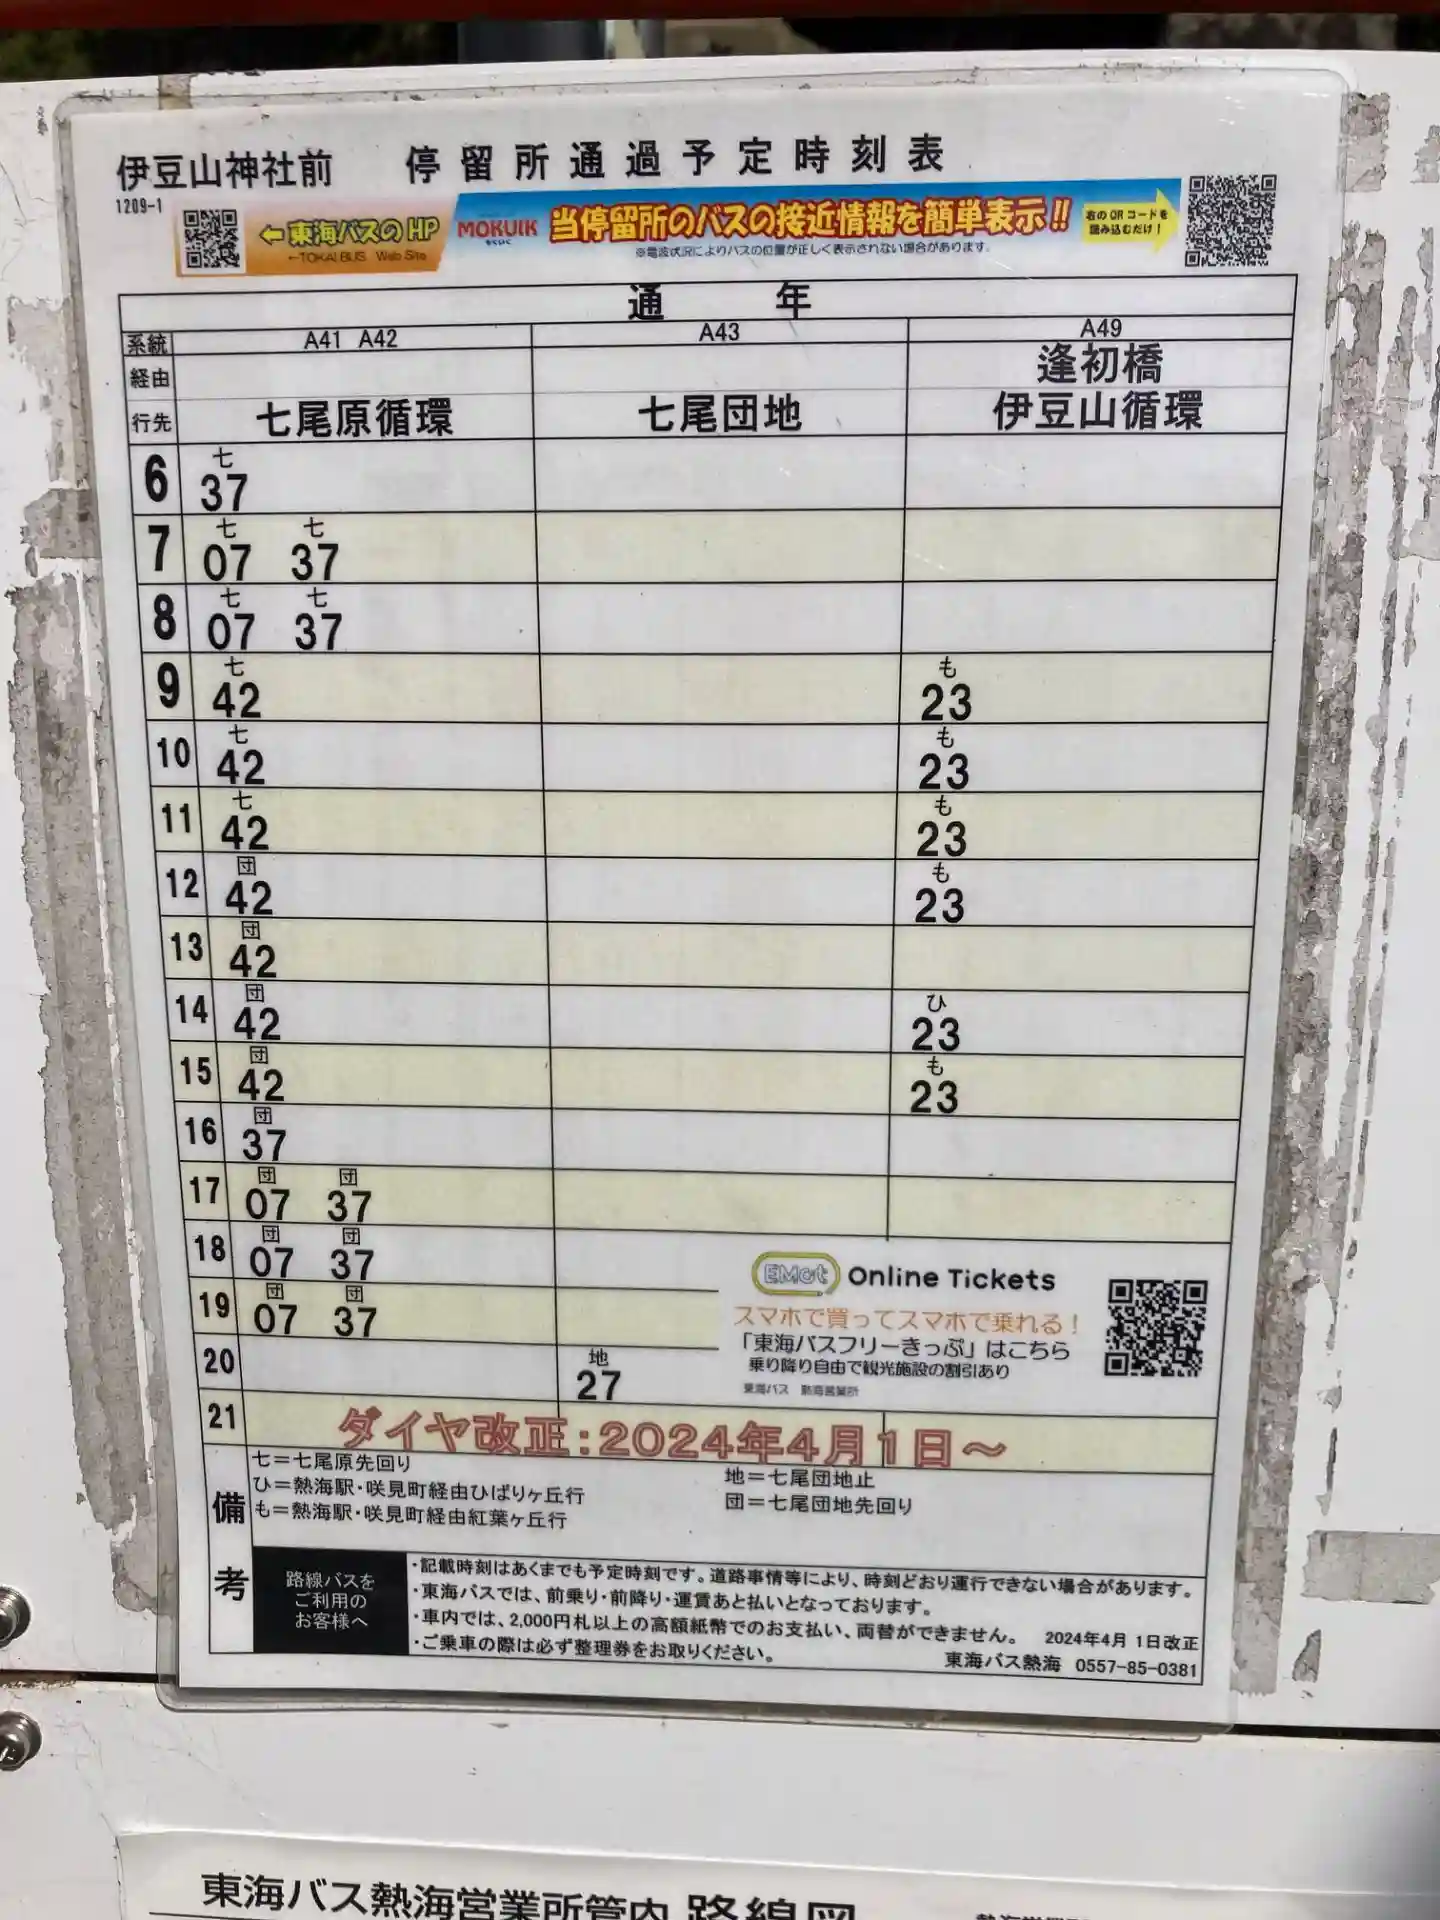 伊豆山神社前 停留所通過予定時刻表
1209-1
←東海バスのHP
←TOKAI BUS Web Site
MOKUIK
もくいく
当停留所のバスの接近情報を簡単表示!!
※電波状況によりバスの位置が正しく表示されない場合があります。
右のQRコードを
読み込むだけ!
通 年
系統 A41 A42 A43 A49
経由 逢初橋
行先 七尾原循環 七尾団地 伊豆山循環
6 七37
7 七07 七37
8 七07 七37
9 七42 も23
10 七42 も23
11 七42 も23
12 団42 も23
13 団42
14 団42 ひ23
15 団42 も23
16 団37
17 団07 団37
18 団07 団37
19 団07 団37
20 地27
21
EMot Online Tickets
スマホで買ってスマホで乗れる!
「東海バスフリーきっぷ」はこちら
乗り降り自由で観光施設の割引あり
東海バス 熱海営業所
ダイヤ改正:2024年4月1日~
備考
七=七尾原先回り
ひ=熱海駅・咲見町経由ひばりヶ丘行
も=熱海駅・咲見町経由紅葉ヶ丘行
地=七尾団地止
団=七尾団地先回り
路線バスを
ご利用の
お客様へ
・記載時刻はあくまでも予定時刻です。道路事情等により、時刻どおり運行できない場合があります。
・東海バスでは、前乗り・前降り・運賃あと払いとなっております。
・車内では、2,000円札以上の高額紙幣でのお支払い、両替ができません。
・ご乗車の際は必ず整理券をお取りください。
2024年4月 1日改正
東海バス熱海 0557-85-0381
東海バス熱海営業所管内 路線図